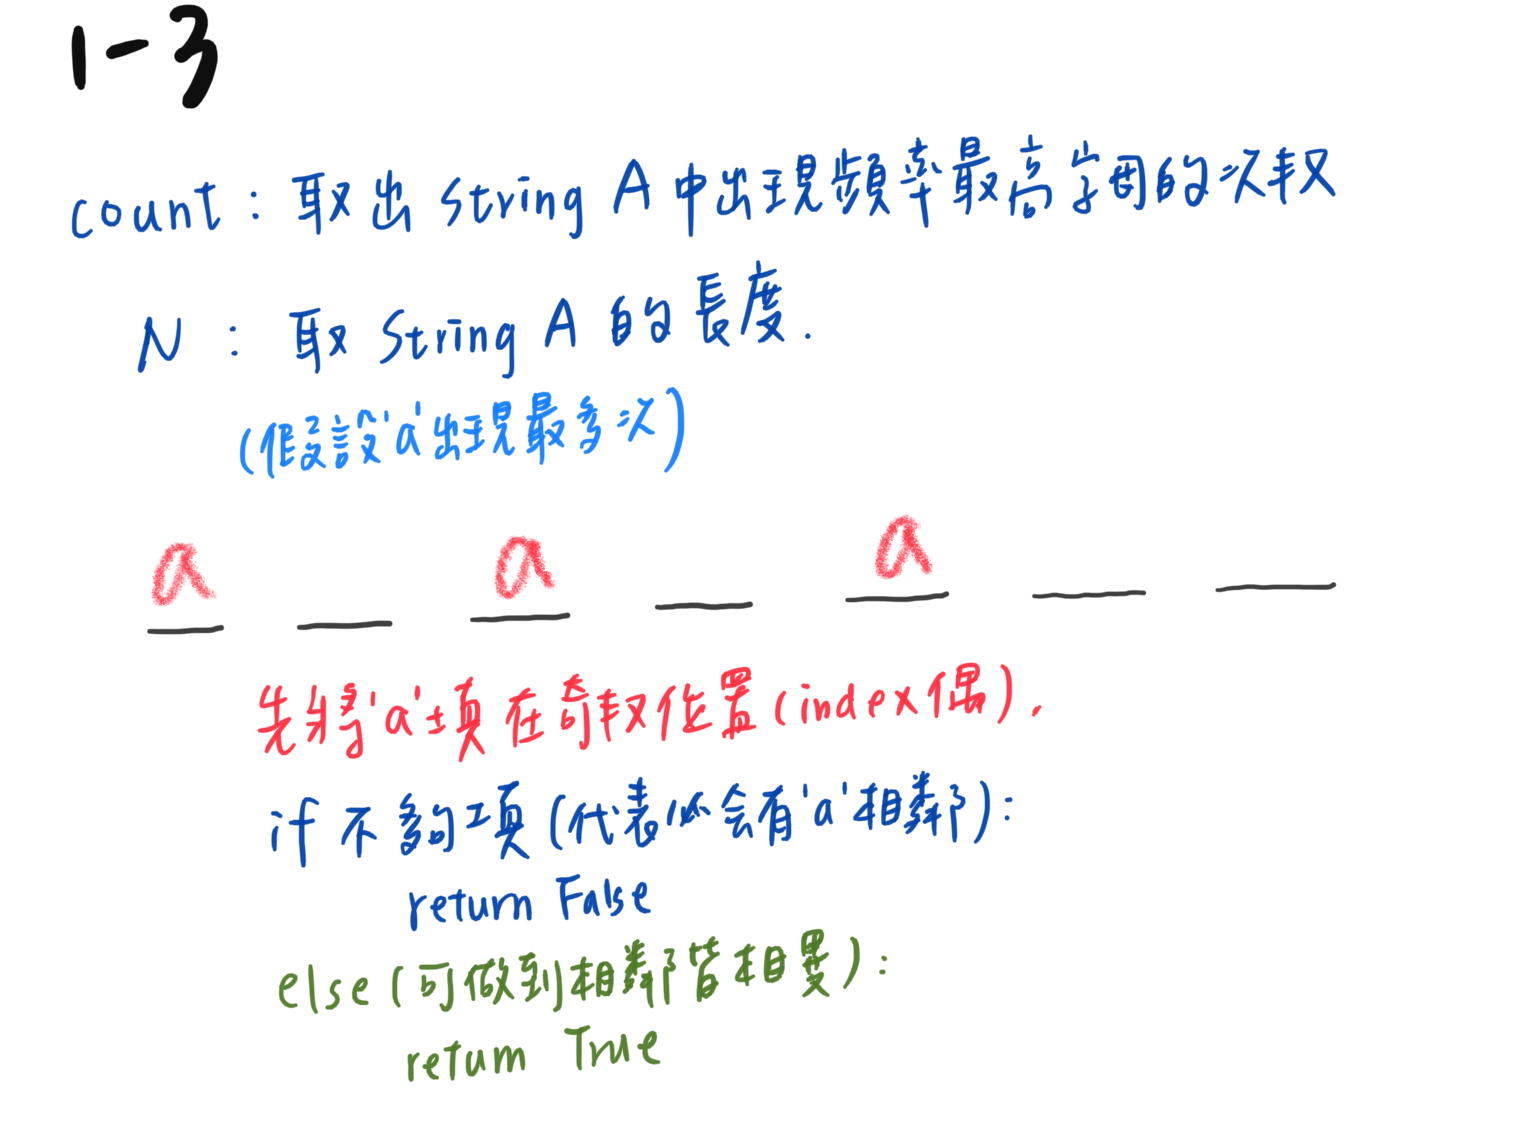 1-3
count : 取出 string A 中出現頻率最高字母的次数
N : 取 String A 的長度.
(假設'a'出現最多次)
a a a
先將'a'填在奇数位置(index偶).
if 不夠填(代表必会有'a'相鄰):
return False
else(可做到相鄰皆相異):
return True